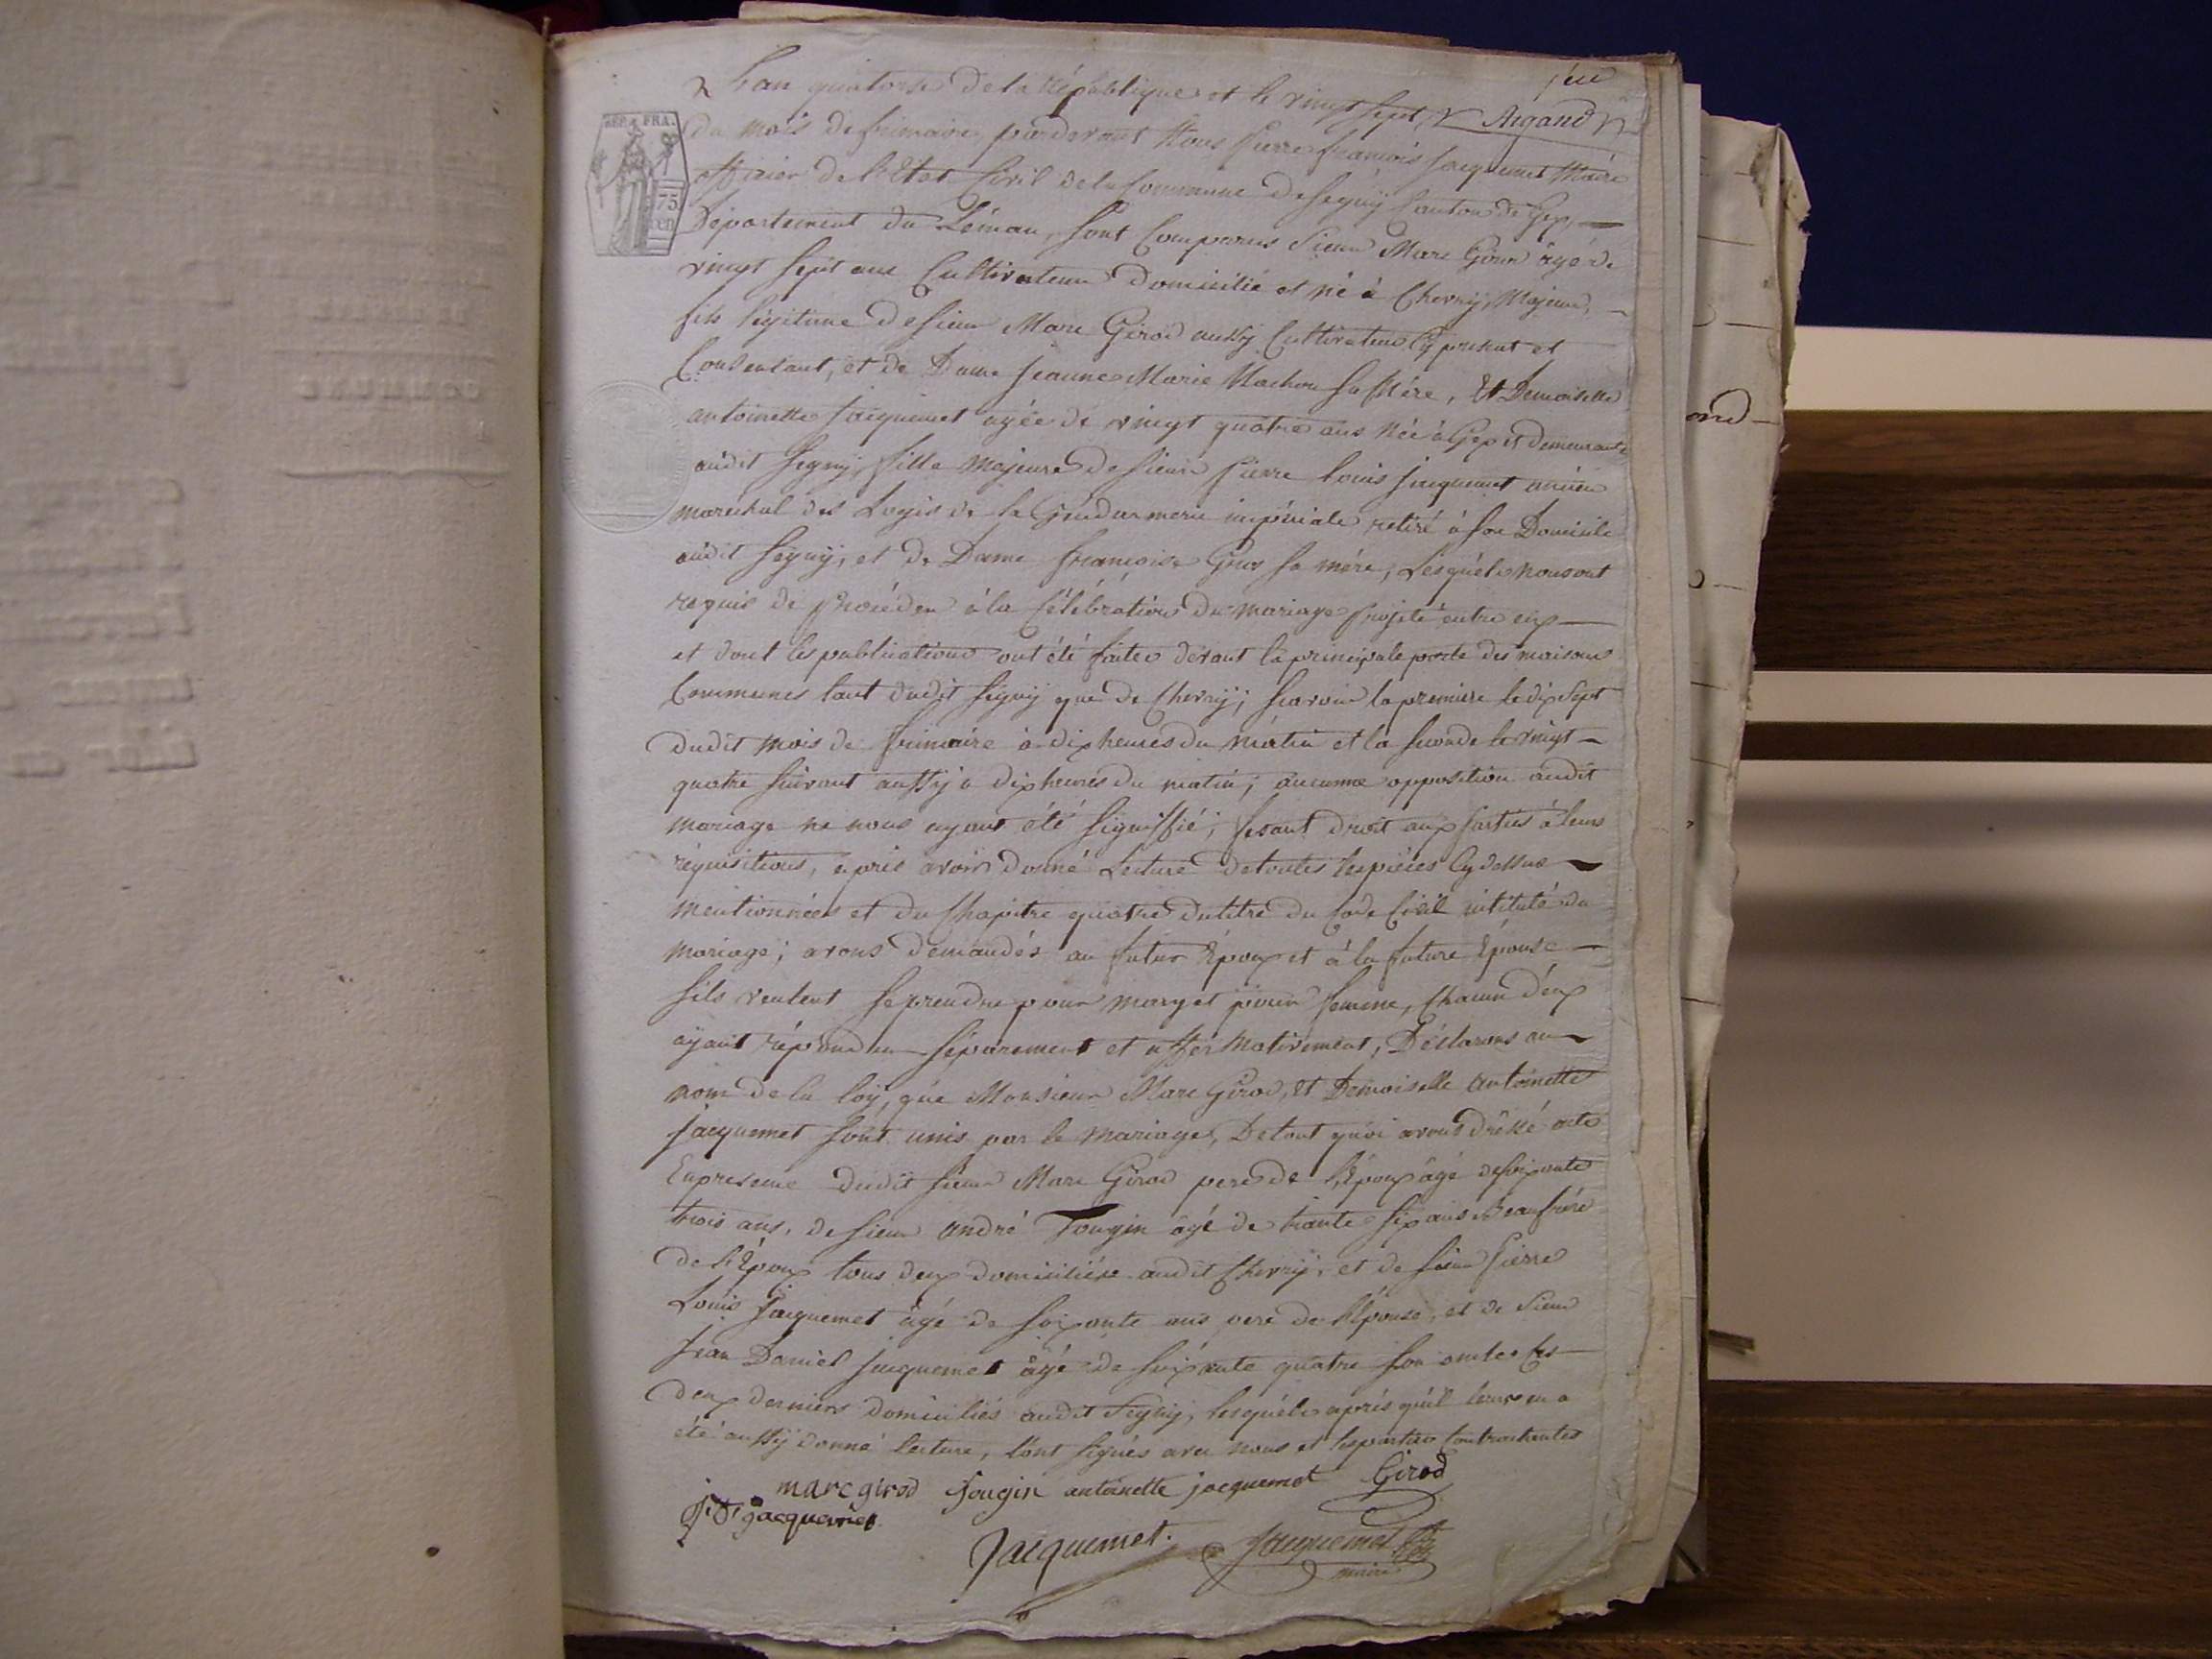 L'an quatorze de la République et le vingt sept
Argand
REP. FRA.
75
CEN
du mois de frimaire, pardevant Nous Pierre françois Jacquemet Maire
officier de l'Etat Civil de la Commune de Segnÿ Canton de Gex,
Département du Léman, sont Comparus Sieur Marc Girod âgé de
vingt sept ans Cultivateur domicilié et né à Chevrÿ, Majeur,
fils légitime de sieur Marc Girod aussÿ Cultivateur Cy présent et
Consentant, et de Dame Jeanne Marie Machon sa Mére, Et Demoiselle
antoinette Jacquemet agée de vingt quatre ans Née à Gex et demeurante
audit Segnÿ, fille Majeure de sieur Pierre louis Jacquemet ancien
maréchal des Logis de la Gendarmerie impériale retiré à son Domicile
audit Segnÿ, et de Dame françoise Gros sa mére, Lesquéls nous ont
requis de procéder à la Célébration du mariage projeté entre eux
et dont les publications ont été faites devant la principale porte des maisons
Communes tant dudit Segnÿ que de Chevrÿ; scavoir la premiere le dix sept
dudit mois de frimaire à dix heures du mâtin et la seconde le vingt
quatre suivant aussÿ à dix heures du matin; aucunne opposition audit
mariage ne nous ayant été signiffié; fesant droit aux parties à leurs
réquisitions, après avoir donné Lecture de toutes les piéces Cy dessus
mentionnées et du Chapitre quatre du titre du Code Civil intitulé du
mariage; avons demandés au futur Époux et à la future Epouse
s'ils veulent se prendre pour mary et pour femme, Chacun d'eux
ayant répondu séparement et affirmativement, Déclarons au
nom de la loÿ, que Monsieur Marc Girod, et Demoiselle Antoinette
Jacquemet sont unis par le mariage, De tout quoi avons dréssé acte
En presence dudit sieur Marc Girod pere de l'Époux âgé de soixante
trois ans, de sieur andré Fougin âgé de trante six ans Beaufrére
de l'Époux tous deux domiciliés audit Chevrÿ, et de sieur Pierre
Louis Jacquemet âgé de soixante ans pere de l'Épouse, et de sieur
Jean Daniel Jacquemet âgé de soixante quatre son oncle Ces
deux derniers domiciliés audit Segnÿ, lesquéls après qu'il leur en a
été aussÿ donné lecture, l'ont signés avec nous et les parties Contractantes
marc girod fougin antoinette jacquemet Girod
J. D. jacquemet
Jacquemet. Jacquemet
maire